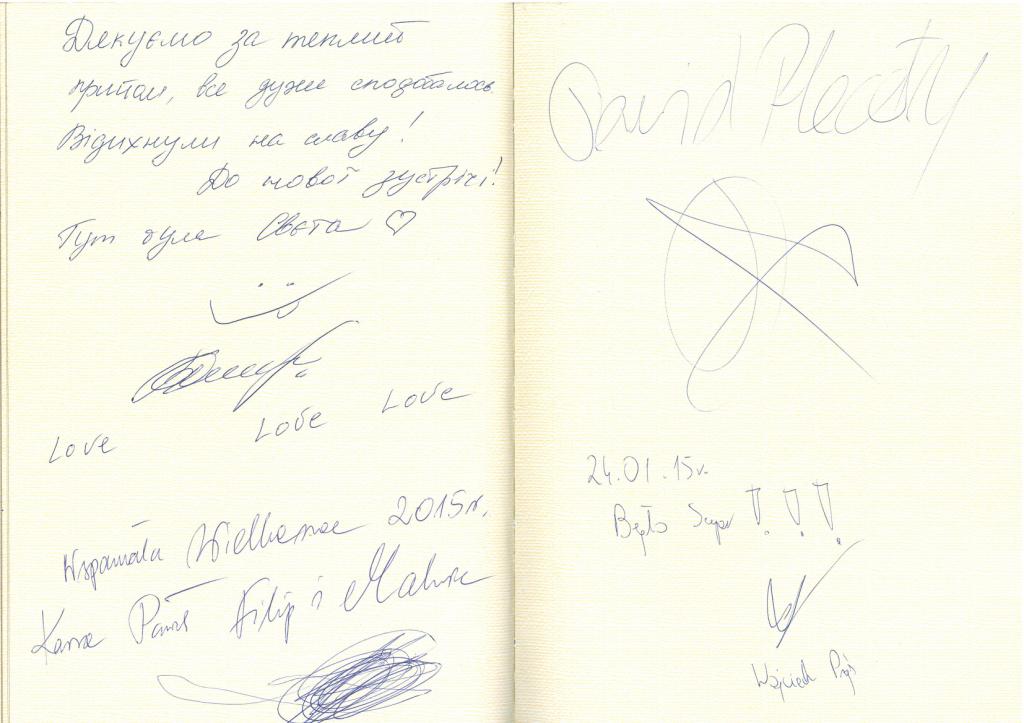 Дякуємо за теплий
прийом, все дуже сподобалось
Відихнули на славу!
До нової зустрічі!
Тут була Свєта ♡
Love Love Love
Wspaniała Wielkanoc 2015r.
Paweł Filip i
David
24.01.15r.
Było Super !!!
Wojciech